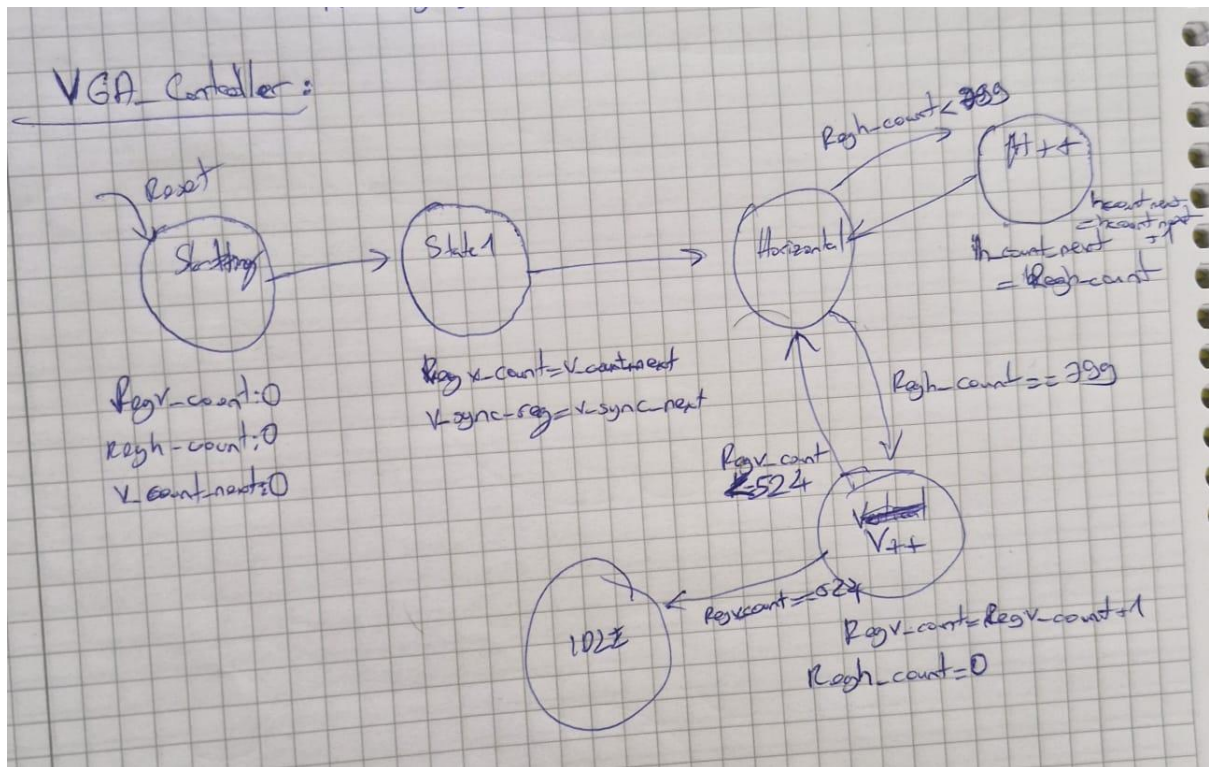 VGA_Controller:
Reset
Starting
Regv_count:0
regh-count:0
v_count_next:0
State1
Reg v_count=v_count_next
v_sync_reg=v_sync_next
Horizontal
Regh_count<799
H++
hcount_next
=hcount_next
+1
h_count_next
=Regh-count
Regh_count==799
Regv_count
<524
V++
Regv_count=Regv_count+1
Regh_count=0
Regvcount==524
IDLE